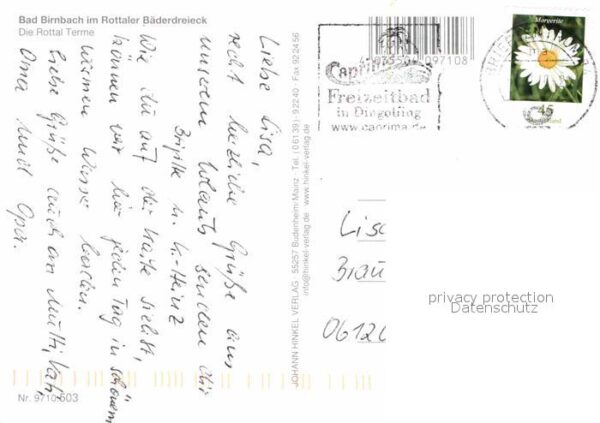 Bad Birnbach im Rottaler Bäderdreieck
Die Rottal Terme
Liebe Lisa,
recht herzliche Grüße aus
unserem Urlaub senden dir
Brigitte u. K.-Heinz
Wie du auf der Karte siehst,
können wir hier jeden Tag in schönem
warmen Wasser baden.
Liebe Grüße auch an Mutti, Vati,
Oma und Opa.
Nr. 9710 603
JOHANN HINKEL VERLAG · 55257 Budenheim/Mainz · Tel. (06139) 92240 · Fax 922456
info@hinkel-verlag.de www.hinkel-verlag.de
097108
Caprima
Freizeitbad
in Dingolfing
www.caprima.de
Margerite
45
Deutschland
Lisa
Brau
06120
privacy protection
Datenschutz